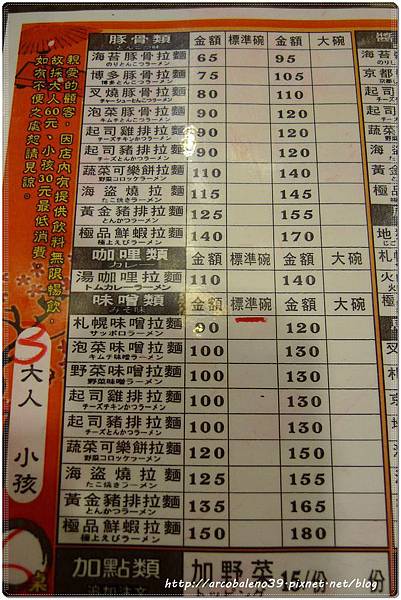 親愛的顧客，因店內有提供飲料無限暢飲，
故採大人60元、小孩30元最低消費，
如有不便之處恕請見諒。
3大人 小孩
桌
豚骨類 金額 標準碗 金額 大碗
とんこつ味
海苔豚骨拉麵 65 95
のりとんこつラーメン
博多豚骨拉麵 75 105
博多とんこつラーメン
叉燒豚骨拉麵 80 110
チャーシューとんこつラーメン
泡菜豚骨拉麵 90 120
キムチとんこつラーメン
起司雞排拉麵 90 120
チーズチキンかつラーメン
起司豬排拉麵 90 120
チーズとんかつラーメン
蔬菜可樂餅拉麵 110 140
野菜コロッケラーメン
海盜燒拉麵 115 145
たこ焼きラーメン
黃金豬排拉麵 125 155
とんかつラーメン
極品鮮蝦拉麵 140 170
極上えびラーメン
咖哩類 金額 標準碗 金額 大碗
カレー
湯咖哩拉麵 110 140
トムカレーラーメン
味噌類 金額 標準碗 金額 大碗
みそ味
札幌味噌拉麵 90 120
サッポロラーメン
泡菜味噌拉麵 100 130
キムチ味噌ラーメン
野菜味噌拉麵 100 130
野菜味噌ラーメン
起司雞排拉麵 100 130
チーズチキンかつラーメン
起司豬排拉麵 100 130
チーズとんかつラーメン
蔬菜可樂餅拉麵 120 150
野菜コロッケラーメン
海盜燒拉麵 125 155
たこ焼きラーメン
黃金豬排拉麵 135 165
とんかつラーメン
極品鮮蝦拉麵 150 180
極上えびラーメン
加點類 加野菜 15/份 份
追加注文 トッピング
http://arcobaleno39.pixnet.net/blog